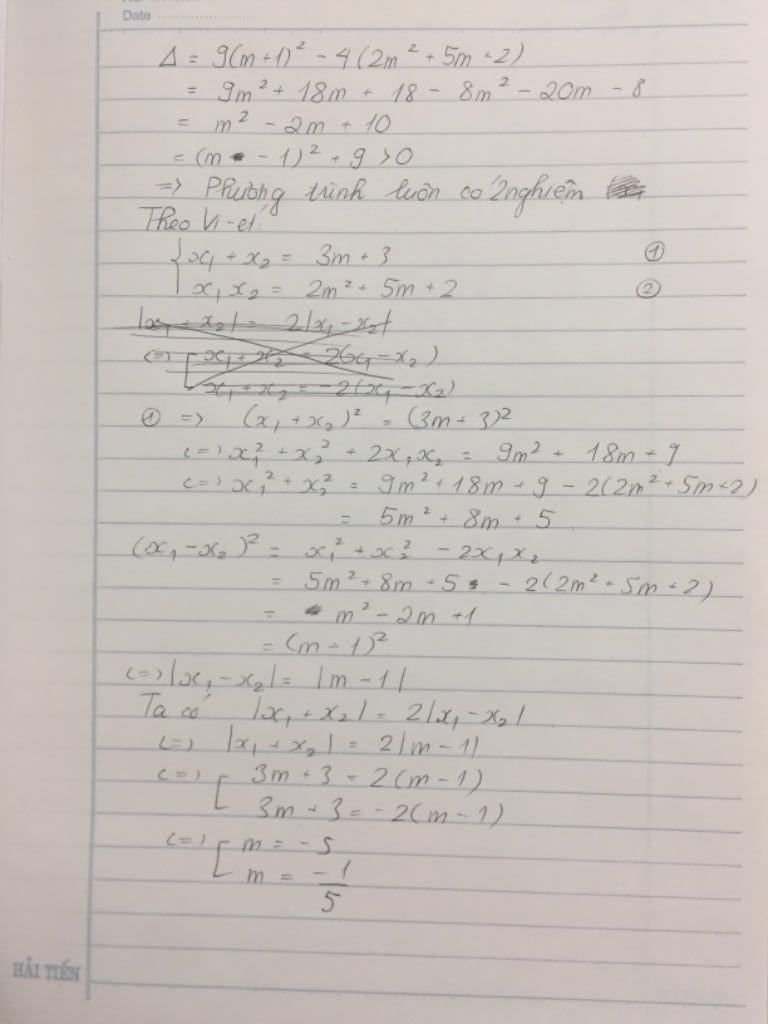 Date
Δ = 9(m+1)² - 4(2m² + 5m + 2)
= 9m² + 18m + 18 - 8m² - 20m - 8
= m² - 2m + 10
= (m - 1)² + 9 > 0
=> Phương trình luôn có 2 nghiệm
Theo Vi-et:
{ x₁ + x₂ = 3m + 3 ①
x₁x₂ = 2m² + 5m + 2 ②
|x₁ + x₂| = 2|x₁ - x₂|
<=> [ x₁ + x₂ = 2(x₁ - x₂)
x₁ + x₂ = -2(x₁ - x₂)
① => (x₁ + x₂)² = (3m + 3)²
<=> x₁² + x₂² + 2x₁x₂ = 9m² + 18m + 9
<=> x₁² + x₂² = 9m² + 18m + 9 - 2(2m² + 5m + 2)
= 5m² + 8m + 5
(x₁ - x₂)² = x₁² + x₂² - 2x₁x₂
= 5m² + 8m + 5 - 2(2m² + 5m + 2)
= m² - 2m + 1
= (m - 1)²
<=> |x₁ - x₂| = |m - 1|
Ta có |x₁ + x₂| = 2|x₁ - x₂|
<=> |x₁ + x₂| = 2|m - 1|
<=> [ 3m + 3 = 2(m - 1)
3m + 3 = -2(m - 1)
<=> [ m = -5
m = -1/5
HẢI TIẾN